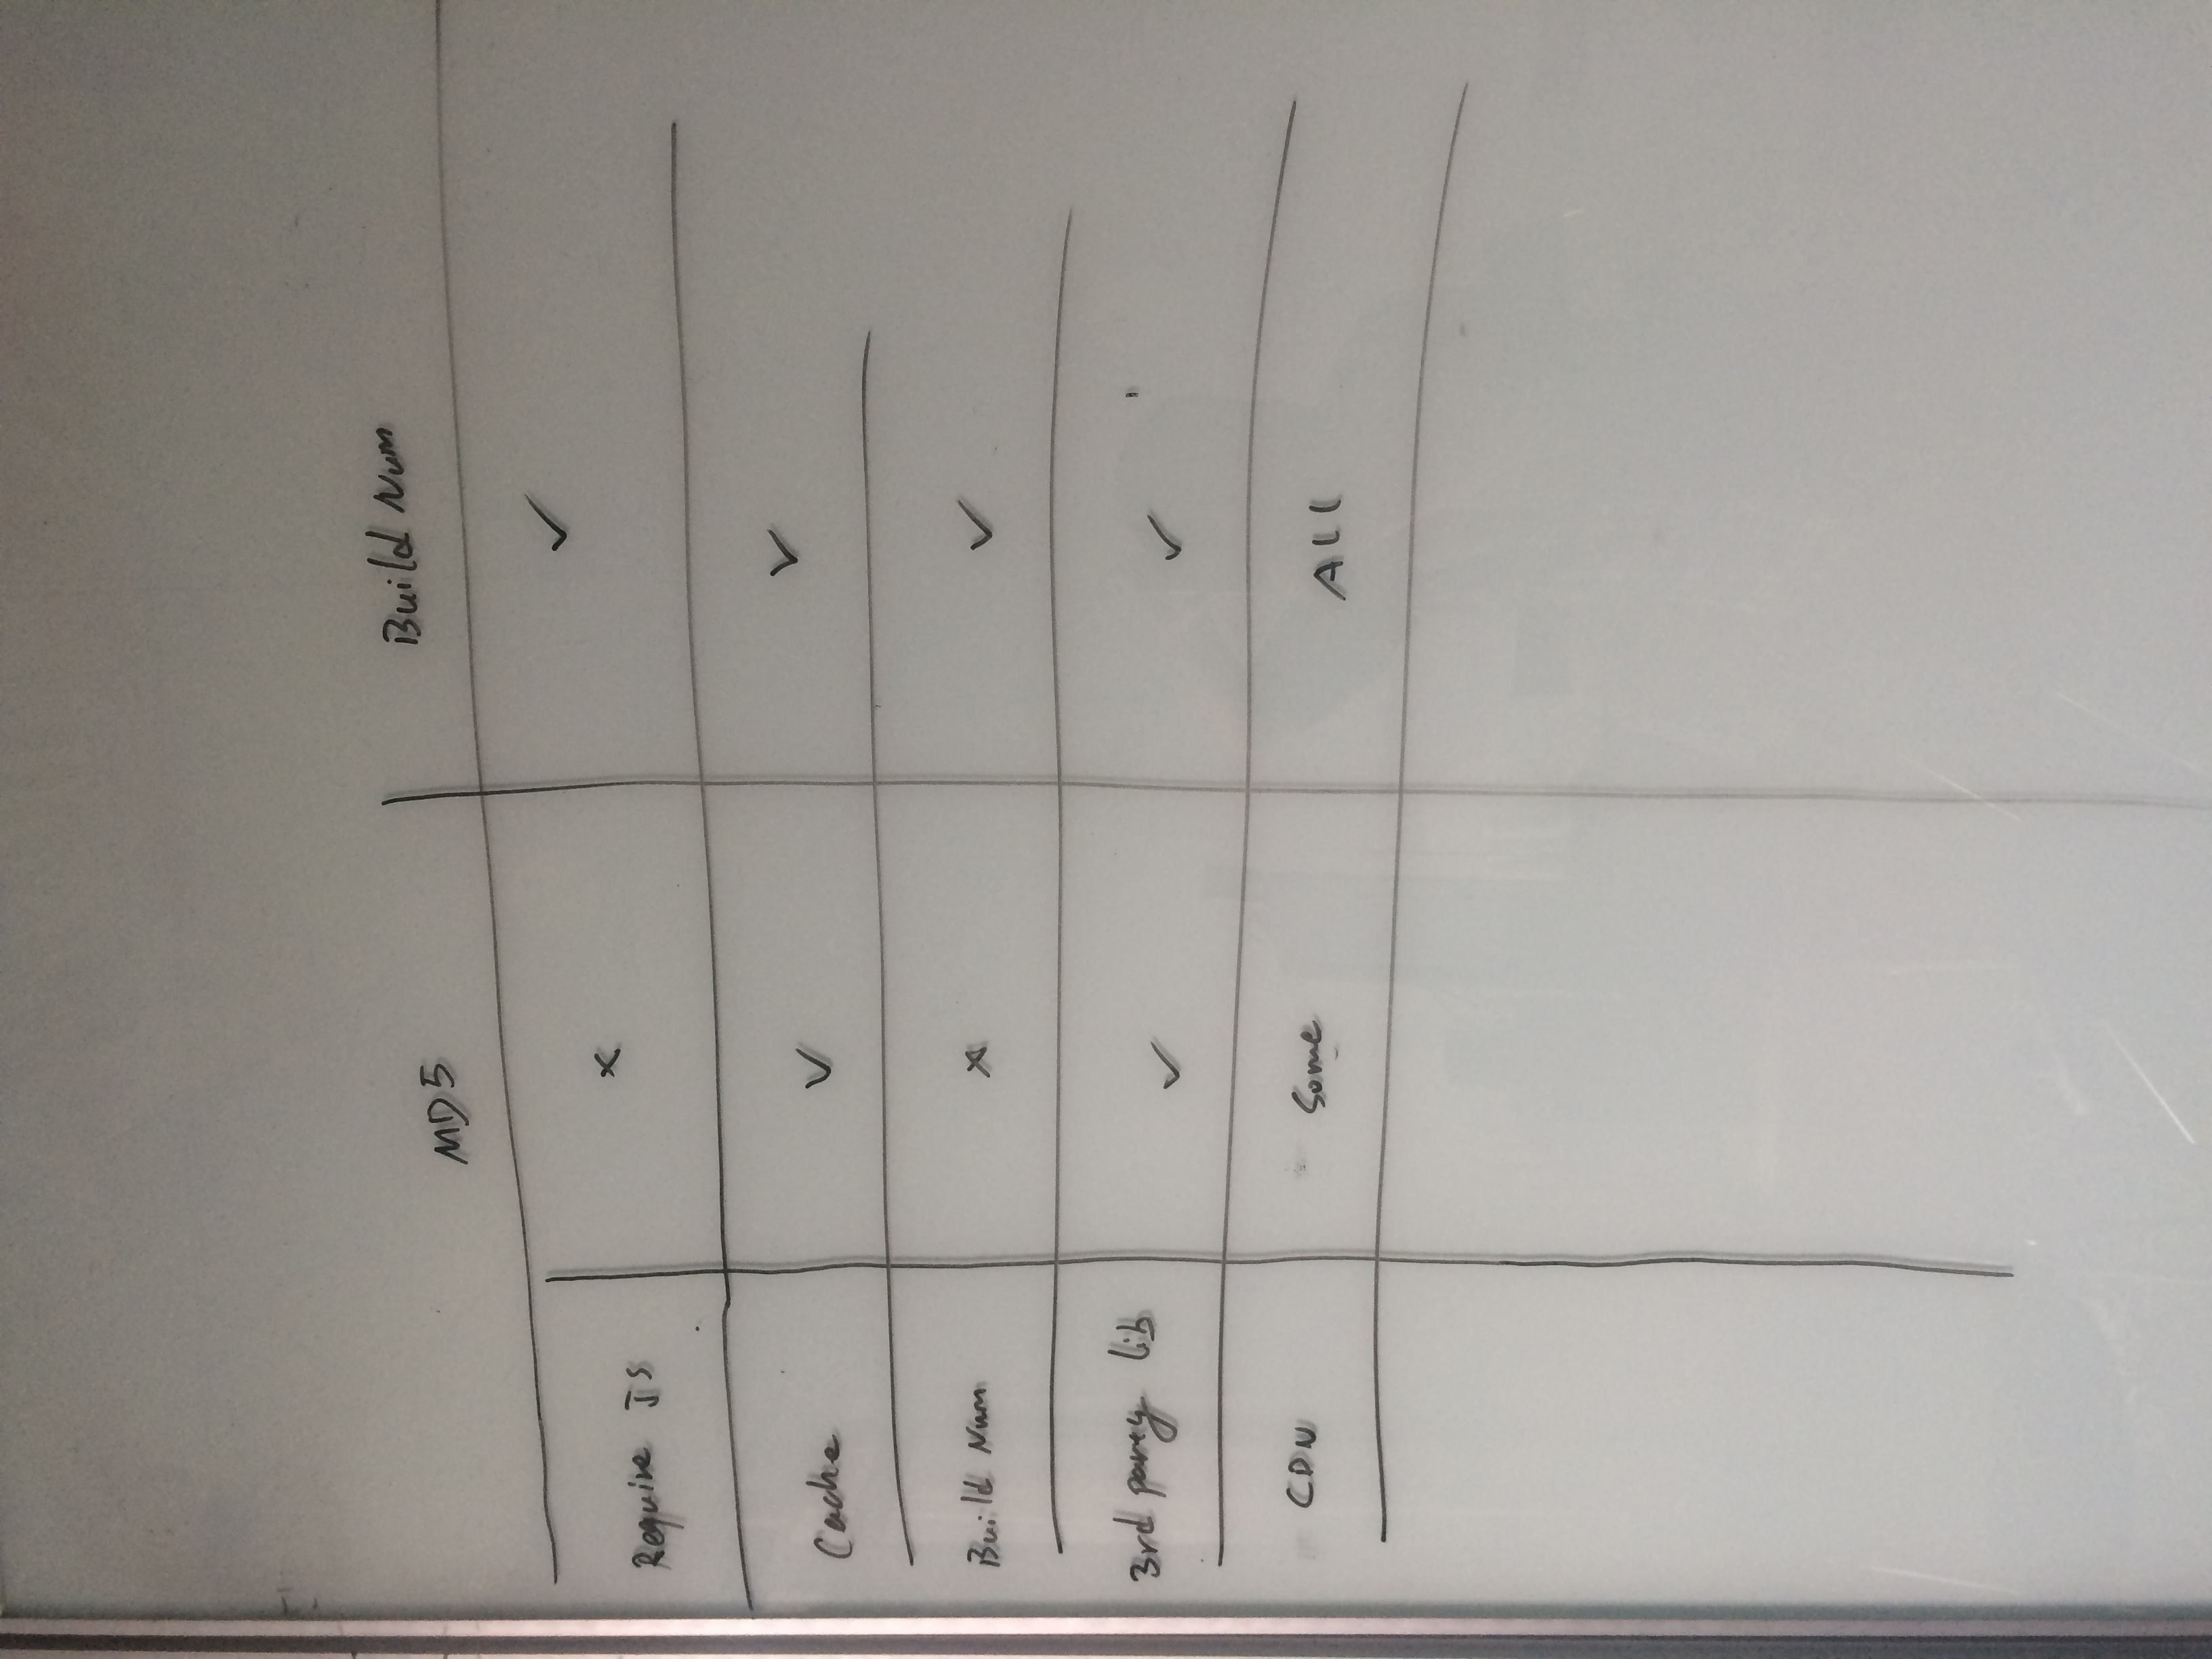 MD5 Build Num
Require JS × ✓
Cache ✓ ✓
Build Num × ✓
3rd party lib ✓ ✓
CDN Some All